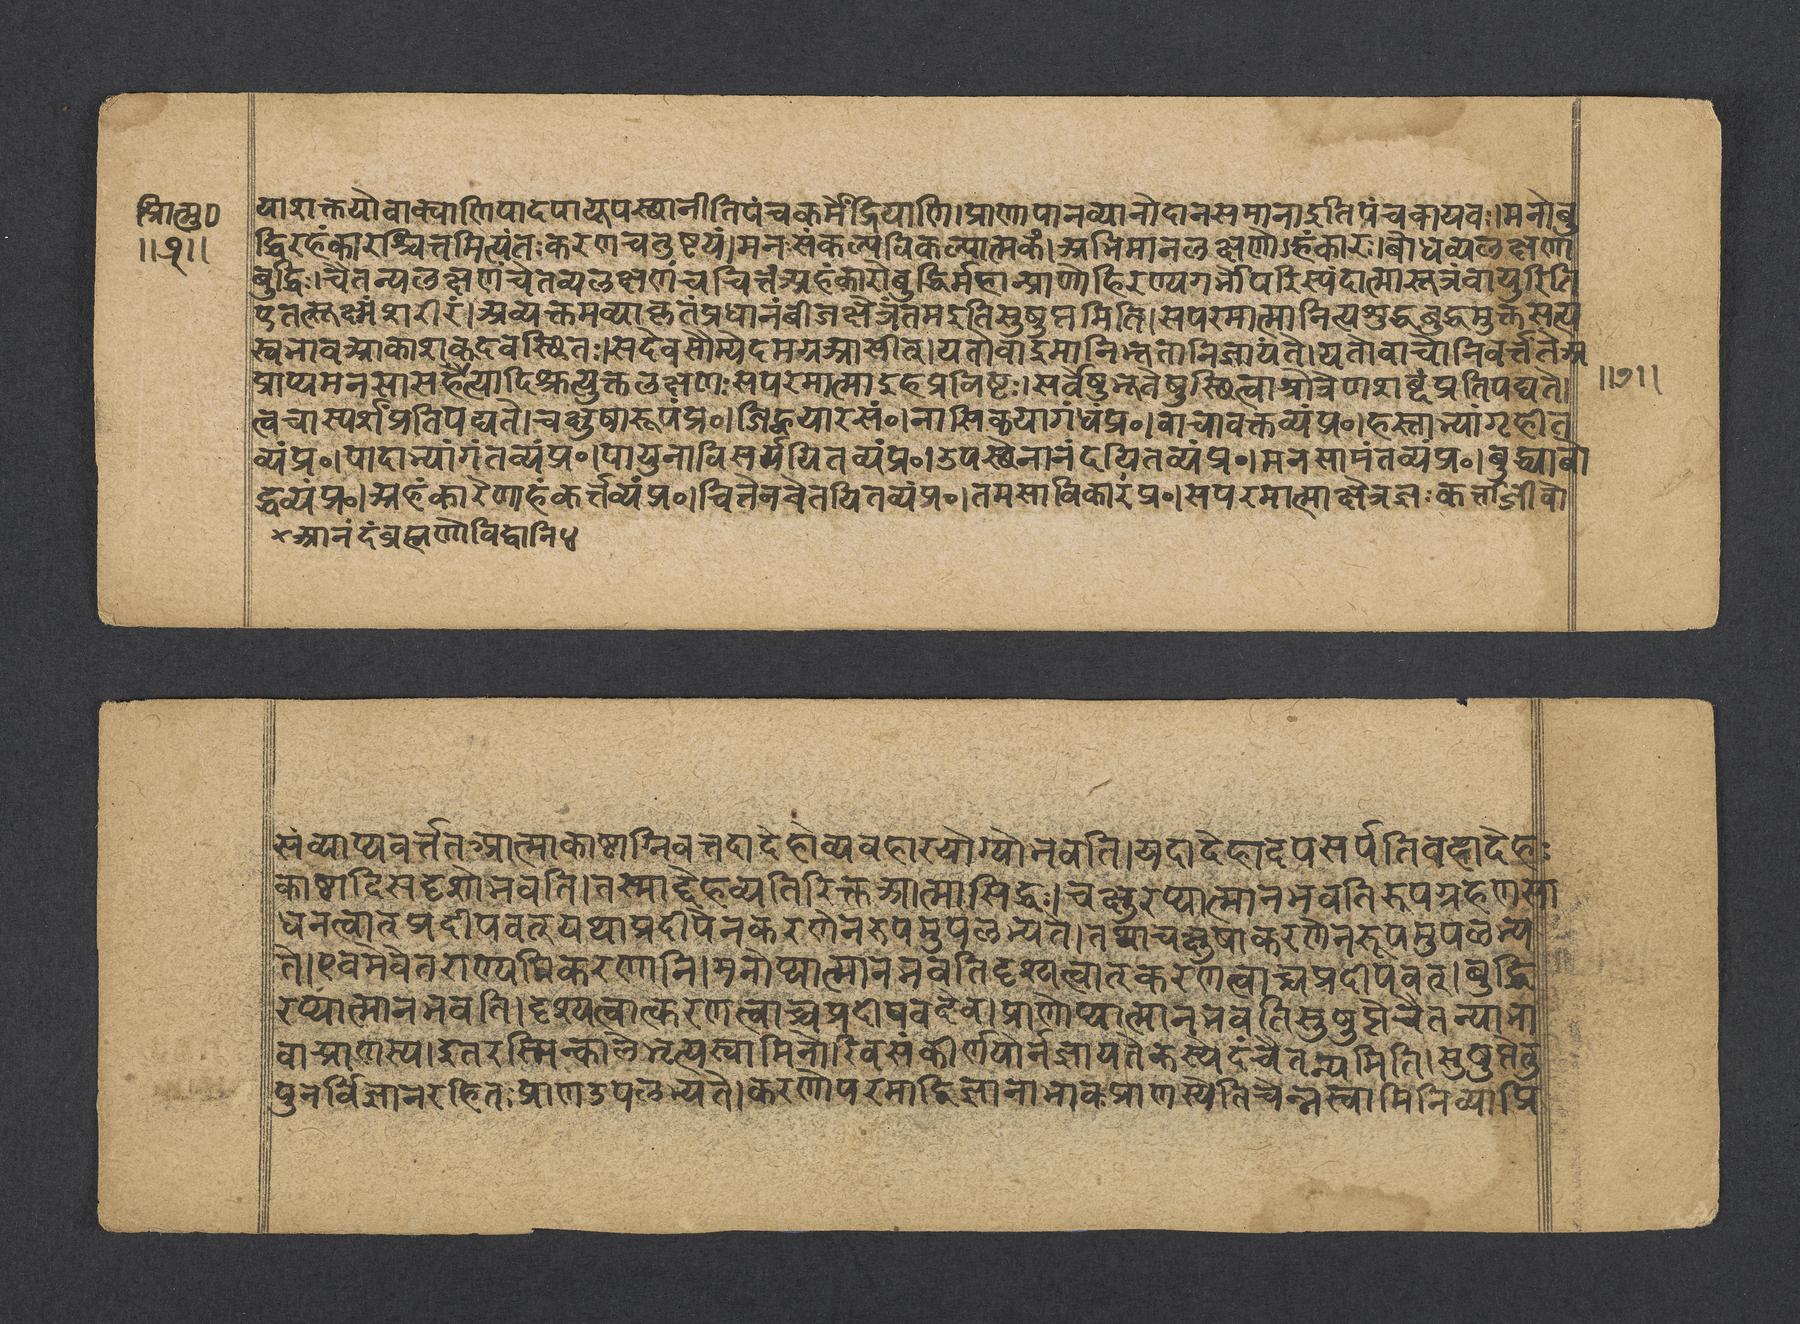 त्रिात्मु०
॥१॥
याशक्तयोवाक्पाणिपादपायूपस्थानीतिपंचकर्मेंद्रियाणि।प्राणापानव्यानोदानसमानाइतिपंचवायवः।मनोबु
द्धिरहंकारश्चित्तमित्यंतःकरणचतुष्टयं।मनःसंकल्पविकल्पात्मकं।अभिमानलक्षणोऽहंकारः।बोधव्यलक्षणा
बुद्धिः।चैतन्यलक्षणंचेतव्यलक्षणंचचित्तंअहंकारोबुद्धिर्महान्प्राणोहिरण्यगर्भोपरिस्पंदात्मासूत्रंवायुरिति
एतत्सूक्ष्मंशरीरं।अव्यक्तमव्याकृतंप्रधानंबीजक्षेत्रंतमइतिसुषुप्तमिति।सपरमात्मानित्यशुद्धबुद्धमुक्तसत्य
स्वभावआकाशवदवस्थितः।सदेवसौम्येदमग्रआसीत्।यतोवाइमानिभूतानिजायंते।यतोवाचोनिवर्त्ततेअ
प्राप्यमनसासहेत्यादिश्रुत्युक्तलक्षणःसपरमात्माइहप्रविष्टः।सर्वेषुभूतेषुस्थित्वाश्रोत्रेणशब्दंप्रतिपद्यते।
॥७॥
त्वचास्पर्शंप्रतिपद्यते।चक्षुषारूपंप्र०।जिह्वयारसं०।नासिकयागंधंप्र०।वाचावक्तव्यंप्र०।हस्ताभ्यांगृहीत
व्यंप्र०।पादाभ्यांगंतव्यंप्र०।पायुनाविसर्जयितव्यंप्र०।उपस्थेनानंदयितव्यंप्र०।मनसामंतव्यंप्र०।बुद्ध्याबो
द्धव्यंप्र०।अहंकारेणाहंकर्त्तव्यंप्र०।चित्तेनचेतयितव्यंप्र०।तमसाविकारंप्र०।सपरमात्माक्षेत्रज्ञःकर्त्ताजीवो
×आनंदंब्रह्मणोविद्वानि४
संव्याप्यवर्त्ततेआत्माकाष्ठाग्निवत्तदादेहोव्यवहारयोग्योभवति।यदादेहादपसर्पतिवह्नादेहः
काष्ठादिसदृशोभवति।तस्माद्देहव्यतिरिक्तआत्मासिद्धः।चक्षुरप्यात्मानभवतिरूपग्रहणसा
धनत्वात्प्रदीपवत्यथाप्रदीपेनकरणेनरूपमुपलभ्यते।तथाचक्षुषाकरणेनरूपमुपलभ्य
ते।एवमेवेतराण्यपिकरणानि।मनोप्यात्मानभवतिदृश्यत्वात्करणत्वाच्चप्रदीपवत्।बुद्धि
रप्यात्मानभवति।दृश्यत्वात्करणत्वाच्चप्रदीपवदेव।प्राणोप्यात्मानभवतिसुषुप्तौचैतन्याभा
वात्प्राणस्य।इतरस्मिन्कालेभृत्यस्वामिनोरिवसंकीर्णयोर्नज्ञायतेकस्येदंचैतन्यमिति।सुषुप्तेतु
पुनर्विज्ञानरहितःप्राणउपलभ्यते।करणोपरमाद्विज्ञानाभावःप्राणस्येतिचेन्नस्वामिनिव्याप्रि